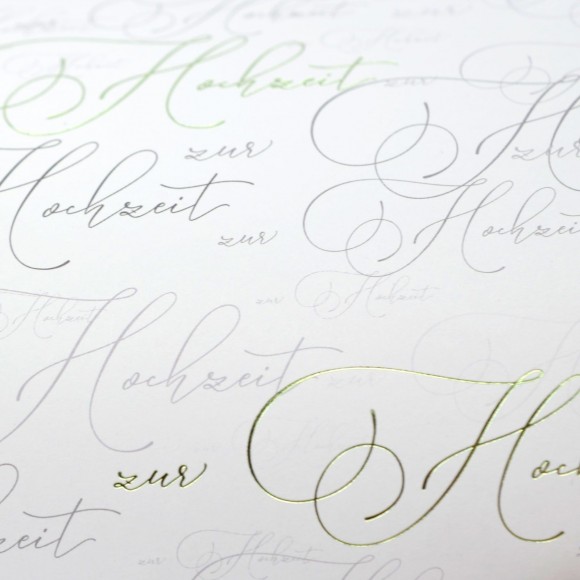 Hochzeit zur
zur Hochzeit
Hochzeit zur Hochzeit
zur Hochzeit
Hochzeit
Hochzeit zur
zur Ho
zeit
zur Hochzeit